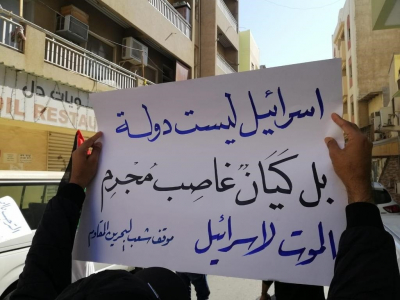 اسرائيل ليست دولة
بل كَيَانٌ غاصِب مُجْرِم
الموت لاسرائيل
موقف شعب البحرين القادم
وبات دل
OIL RESTAU